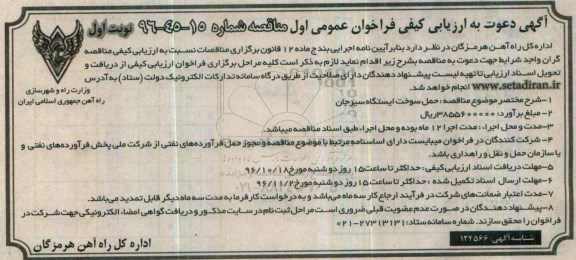 آگهی دعوت به ارزیابی کیفی فراخوان عمومی اول مناقصه شماره ۱۵-۴۵-۹۶ نوبت اول
اداره کل راه آهن هرمزگان در نظر دارد بنابر آیین نامه اجرایی بند ج ماده ۱۲ قانون برگزاری مناقصات نسبت به ارزیابی کیفی مناقصه
گران واجد شرایط جهت دعوت به مناقصه بشرح زیر اقدام نماید لازم به ذکر است کلیه مراحل برگزاری فراخوان ارزیابی کیفی از دریافت و
تحویل اسناد ارزیابی تا تهیه لیست پیشنهاد دهندگان دارای صلاحیت از طریق درگاه سامانه تدارکات الکترونیک دولت (ستاد) به آدرس
www.setadiran.ir انجام خواهد شد.
وزارت راه و شهرسازی
راه آهن جمهوری اسلامی ایران
۱-شرح مختصر موضوع مناقصه : حمل سوخت ایستگاه سیرجان
۲-مبلغ برآورد: ۳۸۵۵۶۰۰۰۰۰ریال
۳-مدت و محل اجراء : مدت اجرا ۱۲ ماه بوده و محل اجراء ، طبق اسناد مناقصه میباشد.
۴-شرکت کنندگان در فراخوان میبایست دارای اساسنامه مرتبط با موضوع مناقصه و مجوز حمل فرآورده‌های نفتی از شرکت ملی پخش فرآورده‌های نفتی و
یا سازمان حمل و نقل و راهداری باشد.
۵-مهلت دریافت اسناد ارزیابی کیفی : حداکثر تا ساعت ۱۵ روز دو شنبه مورخ ۹۶/۱۰/۱۸
۶-مهلت ارسال اسناد تکمیل شده : حداکثر تا ساعت ۱۵ روز دو شنبه مورخ ۹۶/۱۱/۲
۷-مدت اعتبار ضمانت‌های شرکت در فرآیند ارجاع کار سه ماه می‌باشد و به درخواست کارفرما به مدت سه ماه دیگر قابل تمدید می‌باشد.
۸-پیشنهاد دهندگان در صورت عدم عضویت قبلی ضروری است مراحل ثبت نام در سایت مذکور و دریافت گواهی امضاء الکترونیکی جهت شرکت در
فراخوان را محقق سازند. شماره سامانه ستاد: ۲۷۳۱۳۱۳۱-۰۲۱
شناسه آگهی: ۱۲۴۵۶۶
اداره کل راه آهن هرمزگان